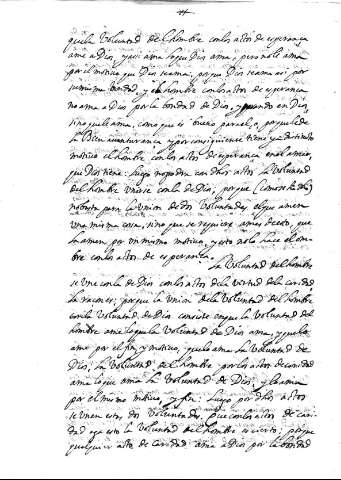 que la Voluntad del hombre con los actos de esperança
ame a Dios, y assi ama lo que Dios ama, pero no le ama
por el motivo que Dios se ama, porque Dios se ama assi por
su misma bondad, y el hombre con los actos de esperança
no ama a Dios por la bondad de Dios, y quando en Dios,
sino que le ama, como que es bueno para el, o porque le de
la Bienaventurança y por consiguiente tiene distinto
motivo el hombre con los actos de esperança en el amar,
que Dios tiene: luego no podra con dhos actos la Voluntad
del hombre Vnirse con la de Dios; porque (como se ha dho)
no basta para la Vnion de dos Voluntades, el que amen
Vna misma cosa, sino que se requiere ames de esto, que
la amen por un mismo motivo, y esto no lo hace el om-
bre con los actos de esperança.
La Voluntad del hombre
se Vne con la de Dios con los actos de la virtud de la caridad
la raçon es; porque la Vnion de la Voluntad del hombre
con la Voluntad de Dios consiste en que la Voluntad del
hombre ame lo que la Voluntad de Dios ama, y que lo
ame por el fin, y motivo, que lo ama la Voluntad de
Dios; la Voluntad del hombre por los actos de caridad
ama lo que ama la Voluntad de Dios, y lo ama
por el mismo motivo, y fin: luego por dhos actos
se Vnen estas dos Voluntades, que con los actos de cari-
dad aya esto la Voluntad del hombre es cierto; porque
qualquier acto de caridad ama a Dios por la bondad